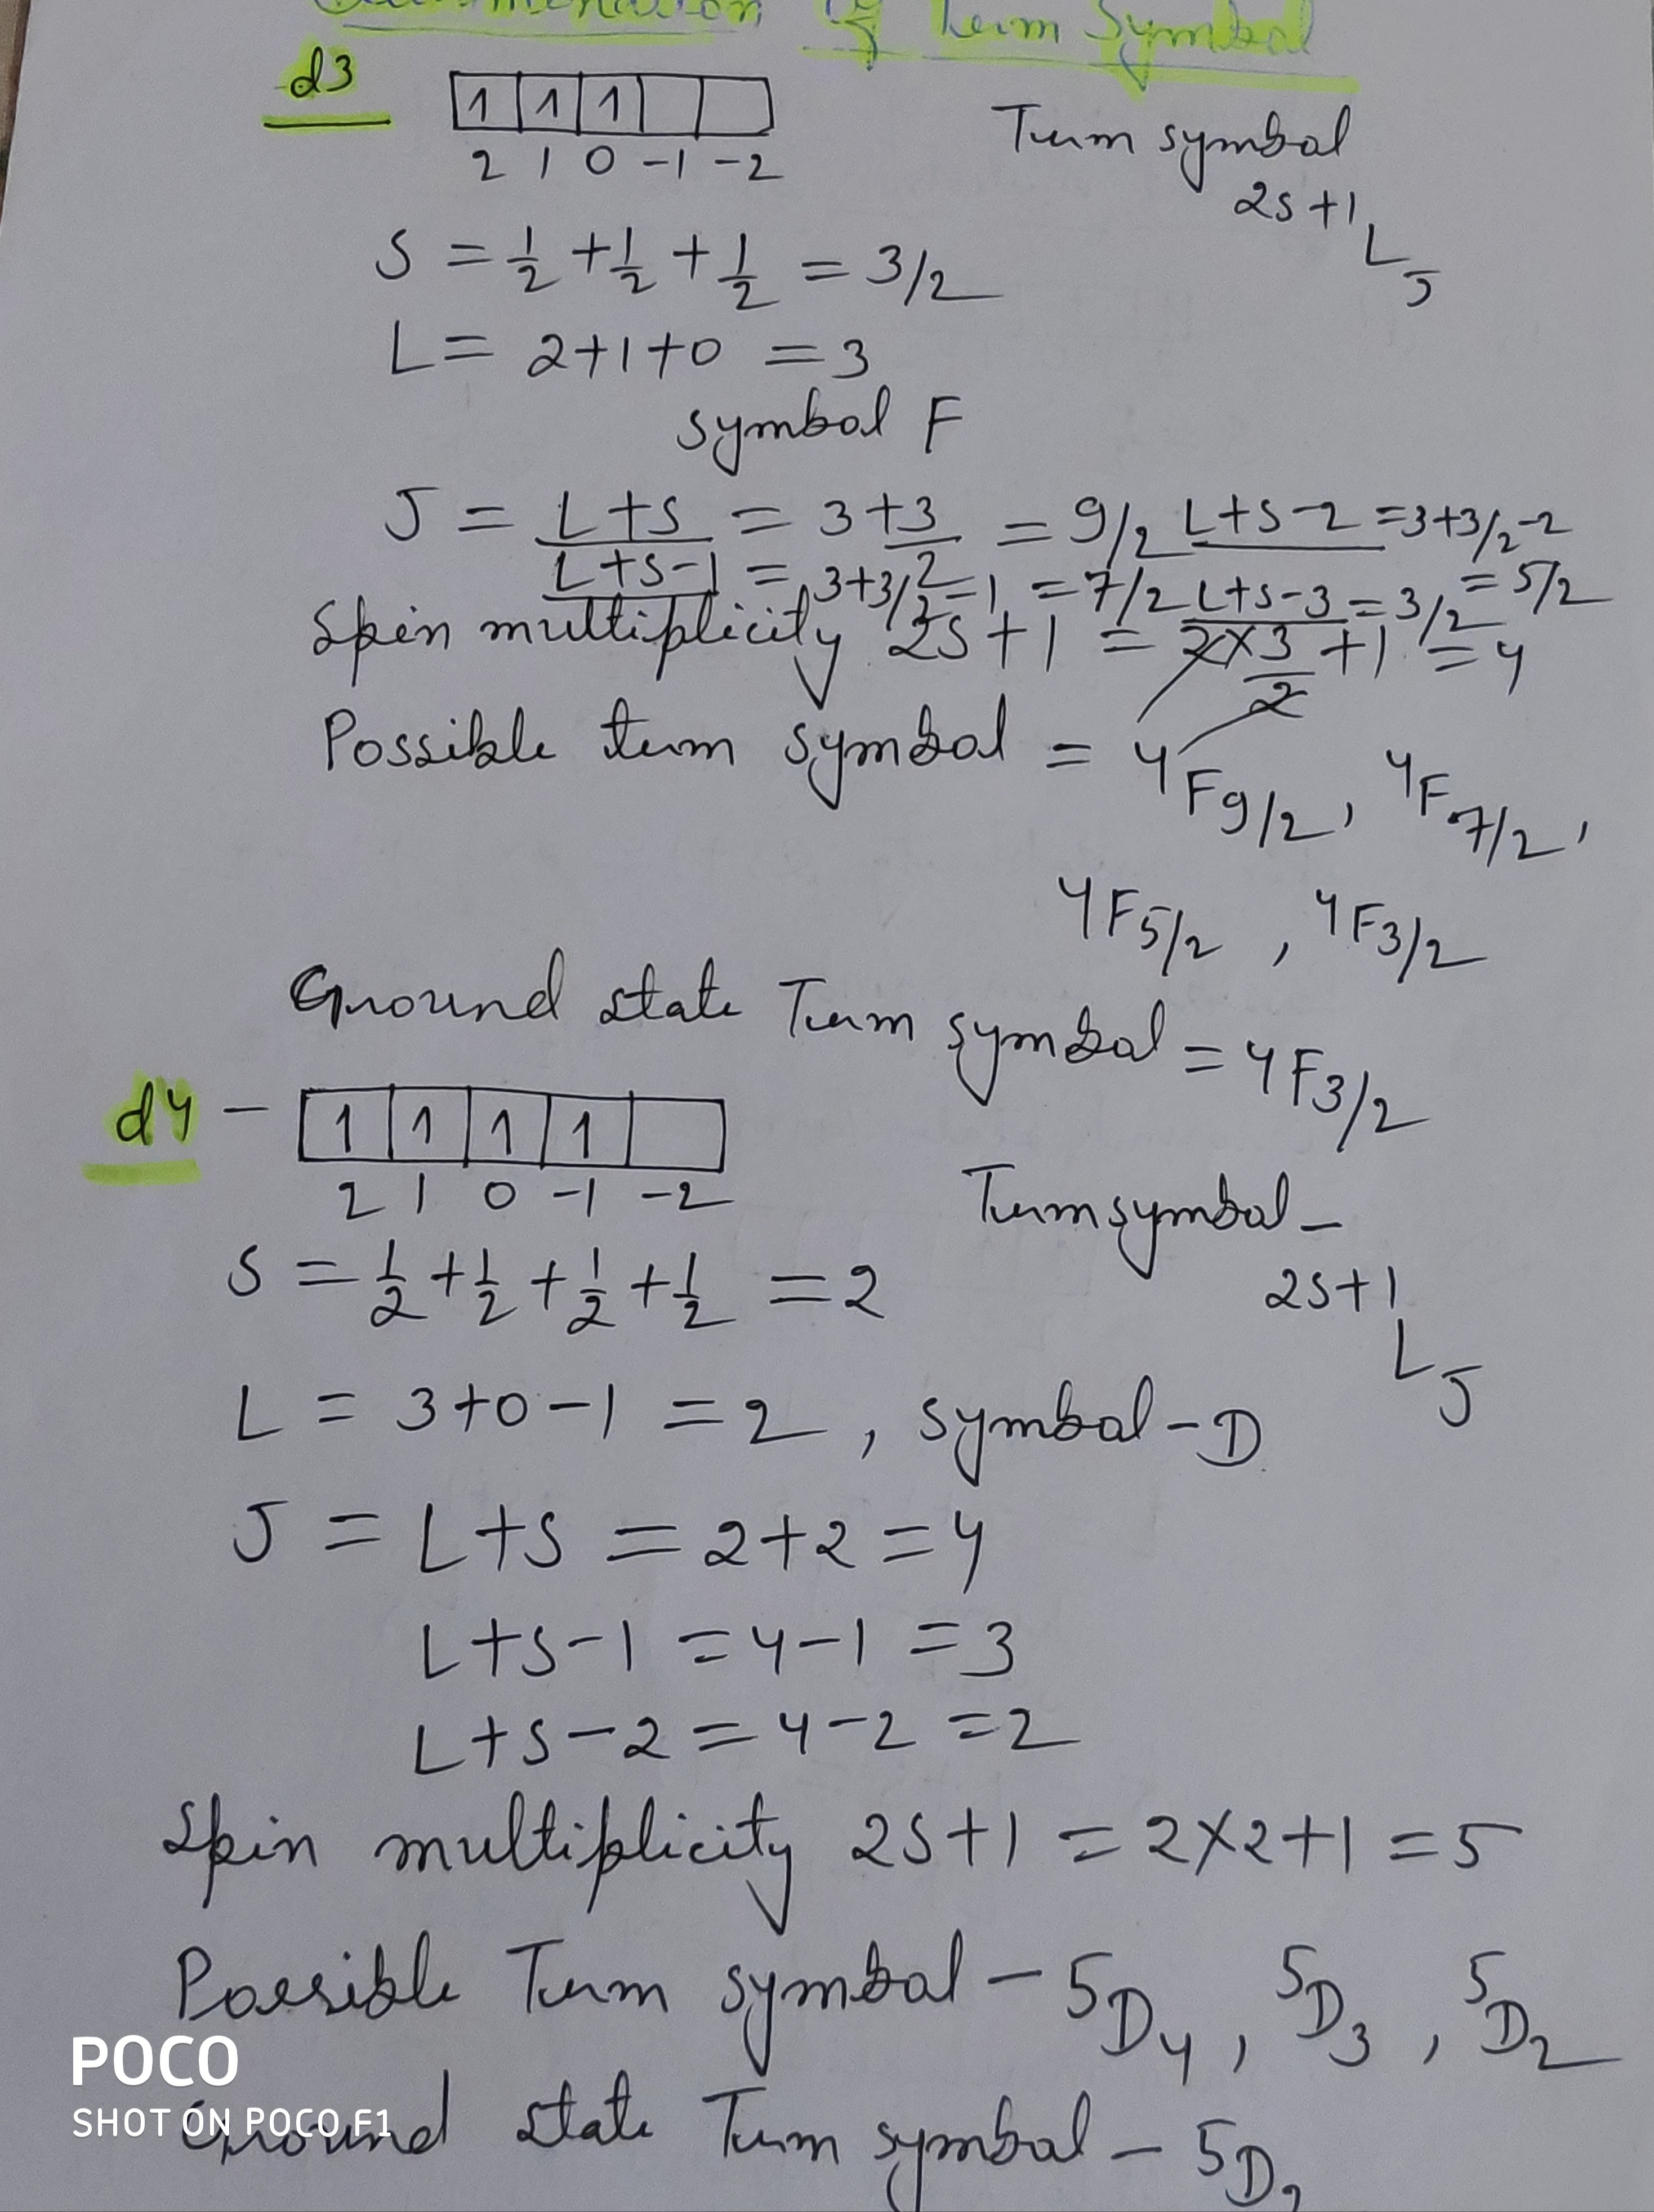 of Term Symbol
d3 1 1 1
2 1 0 -1 -2
Term symbol
2s+1
L
J
S = 1/2 + 1/2 + 1/2 = 3/2
L = 2+1+0 = 3
symbol F
J = L+S = 3+3/2 = 9/2 L+S-2 = 3+3/2-2
L+S-1 = 3+3/2-1 = 7/2 L+S-3 = 3/2 = 5/2
Spin multiplicity 2S+1 = 2×3/2+1 = 4
Possible term symbol = 4F9/2, 4F7/2,
4F5/2, 4F3/2
Ground state Term symbol = 4F3/2
d4 - 1 1 1 1
2 1 0 -1 -2
Term symbol -
2s+1
L
J
S = 1/2 + 1/2 + 1/2 + 1/2 = 2
L = 3+0-1 = 2, symbol - D
J = L+S = 2+2 = 4
L+S-1 = 4-1 = 3
L+S-2 = 4-2 = 2
Spin multiplicity 2S+1 = 2×2+1 = 5
Possible Term symbol - 5D4, 5D3, 5D2
Ground state Term symbol - 5D
POCO
SHOT ON POCO F1